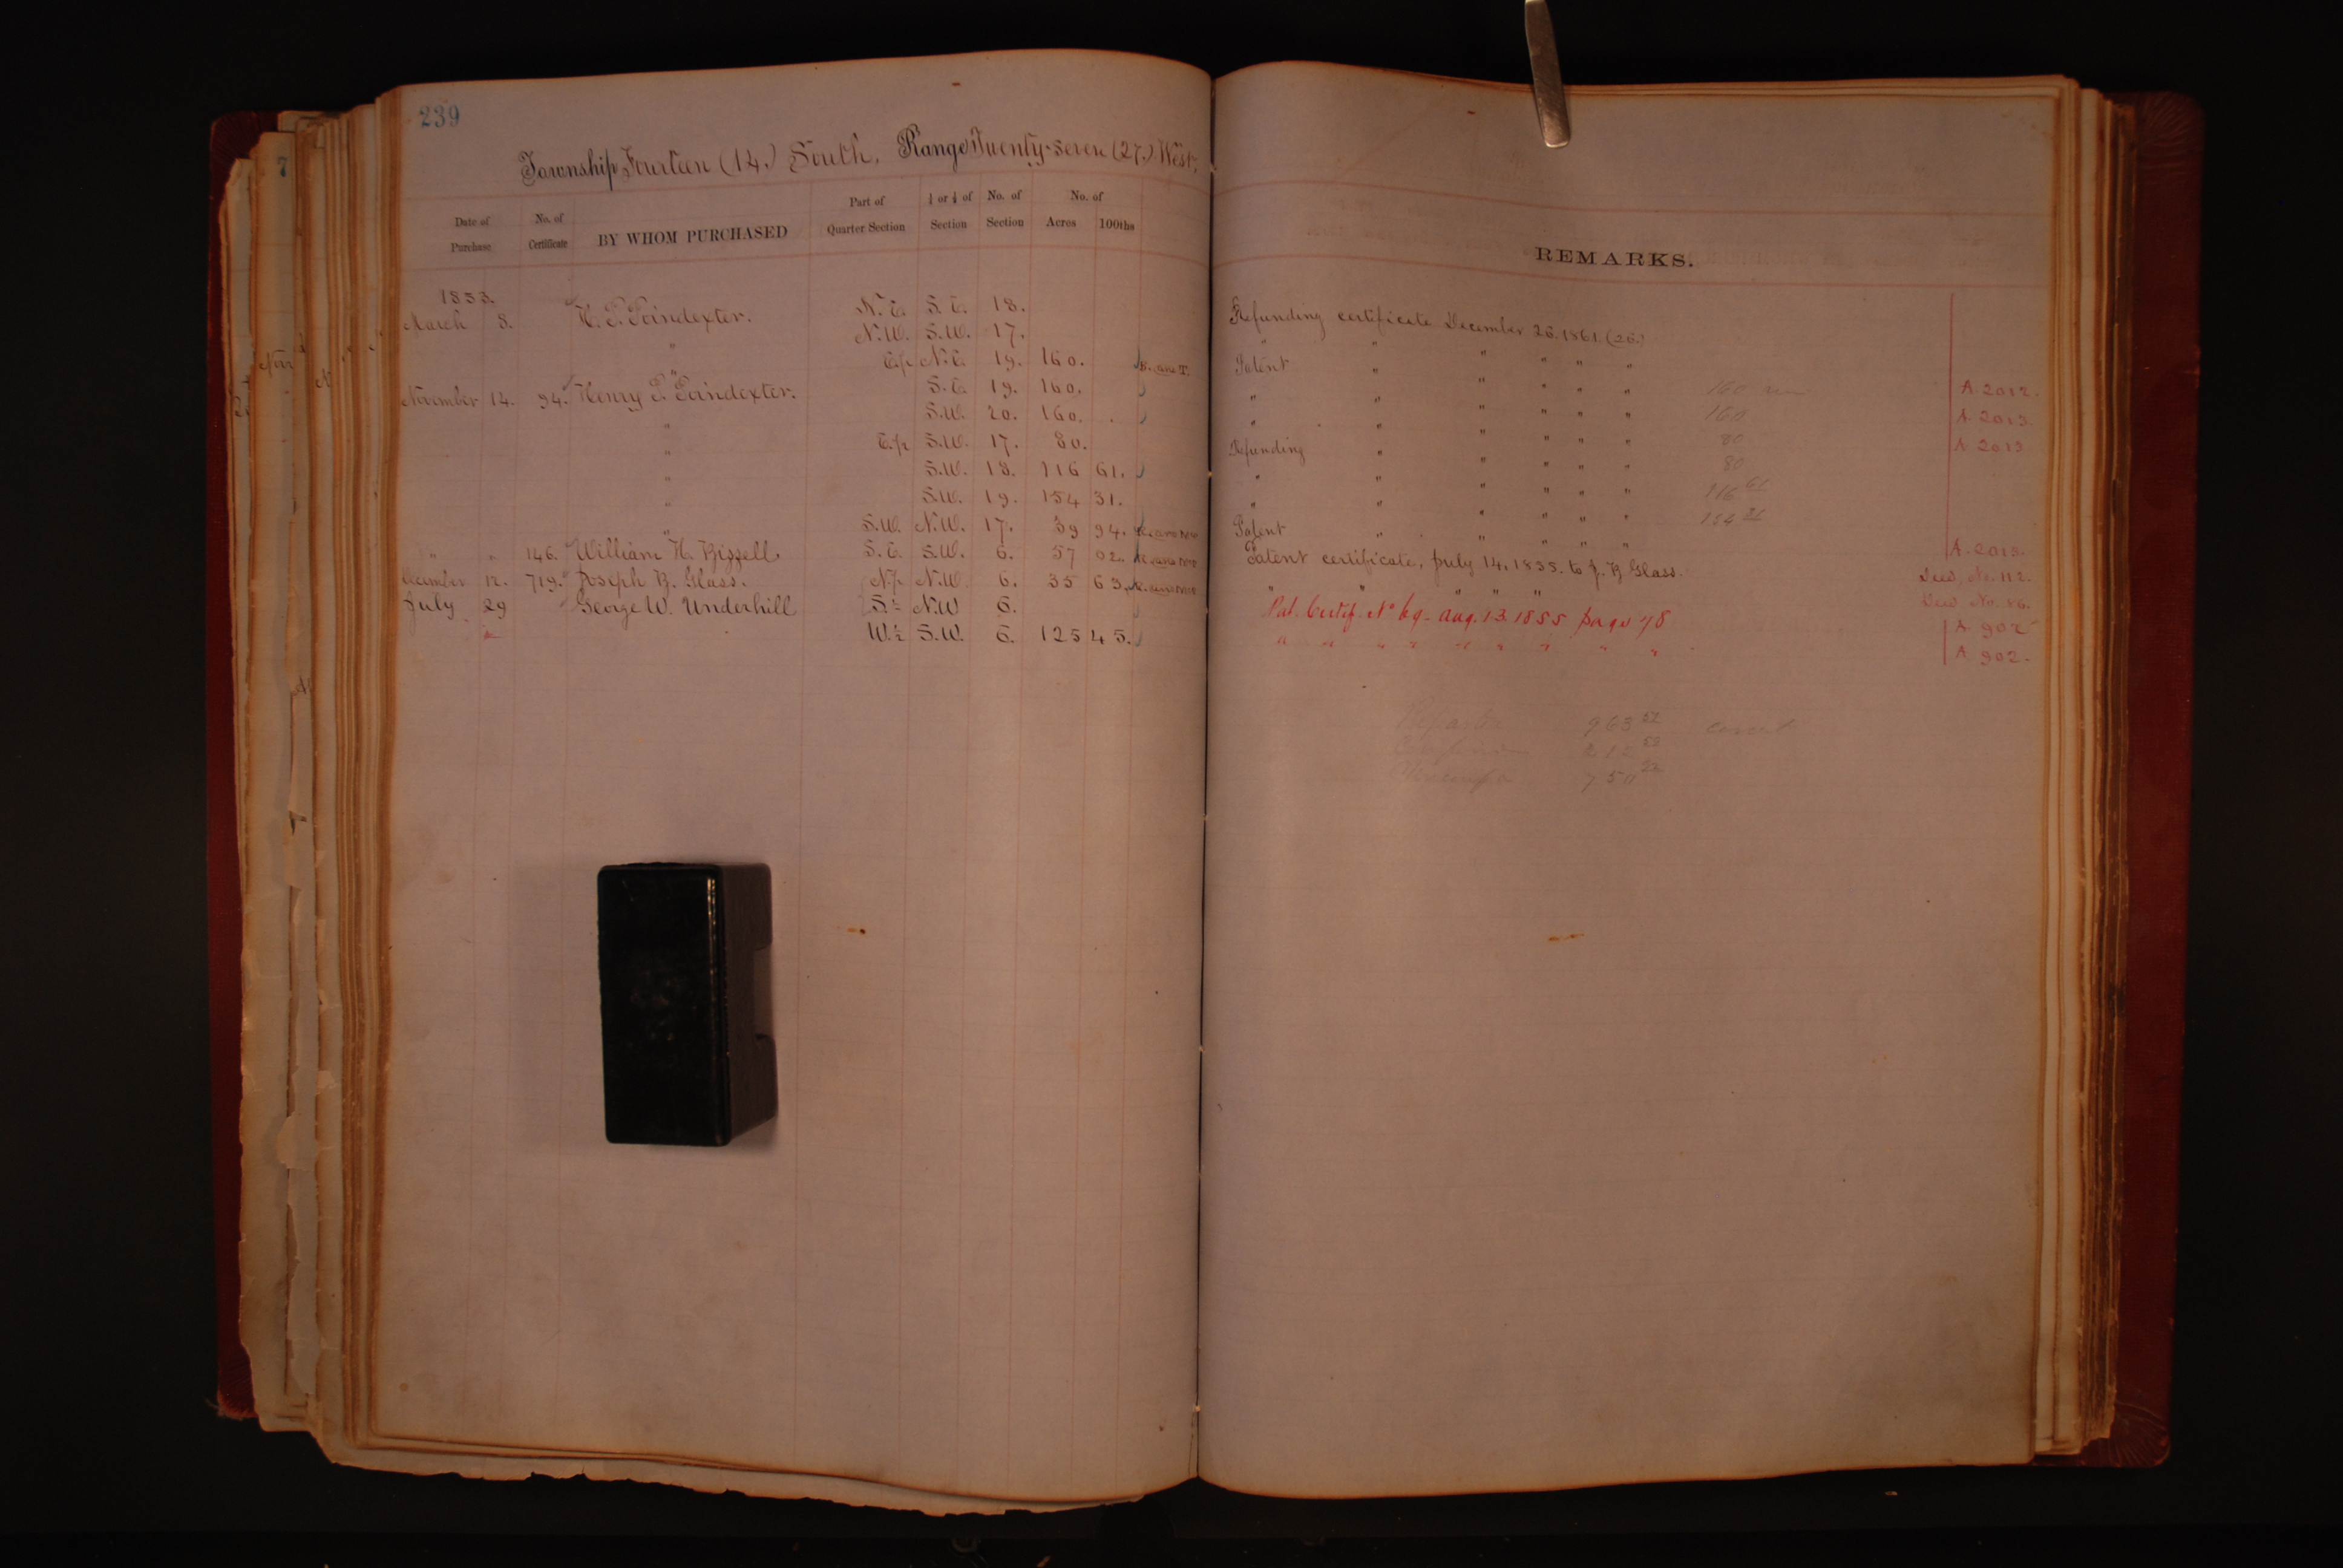 239
7
Township Fourteen (14.) South, Range Twenty-seven (27.) West,
Date of Purchase | No. of Certificate | BY WHOM PURCHASED | Part of Quarter Section | ½ or ¼ of Section | No. of Section | No. of Acres | 100ths
1853.
March 8. H. P. Poindexter. N.E. S.E. 18.
" N.W. S.W. 17.
" E.½ N.E. 19. 160. B. and T.
November 14. 94. Henry P. Poindexter. S.E. 19. 160.
" S.W. 20. 160.
" E.½ S.W. 17. 80.
" S.W. 18. 116 61.
" S.W. 19. 154 31.
" S.W. N.W. 17. 39 94.
" " 146. William H. Bizzell. S.E. S.W. 6. 57 02.
December 12. 719. Joseph B. Glass. N.½ N.W. 6. 35 63.
July 29 George W. Underhill S.½ N.W 6.
" W.½ S.W. 6. 125 45.
REMARKS.
Refunding certificate December 26. 1861. (26.)
" " " " " "
Patent " " " " " 160 A. 2012.
" " " " " " 160 A. 2013.
" " " " " " 80 A. 2013
Refunding " " " " " 80
" " " " " " 116 61
" " " " " " 154 31
Patent " " " " " A. 2013.
Patent certificate, July 14. 1855. to J. B. Glass. Deed No. 112.
" " " " " Deed No. 86.
Pat. Certif. No 69 - Aug. 13. 1855 page 78 A. 902
" " " " " " " " " A 902.
963
212
750